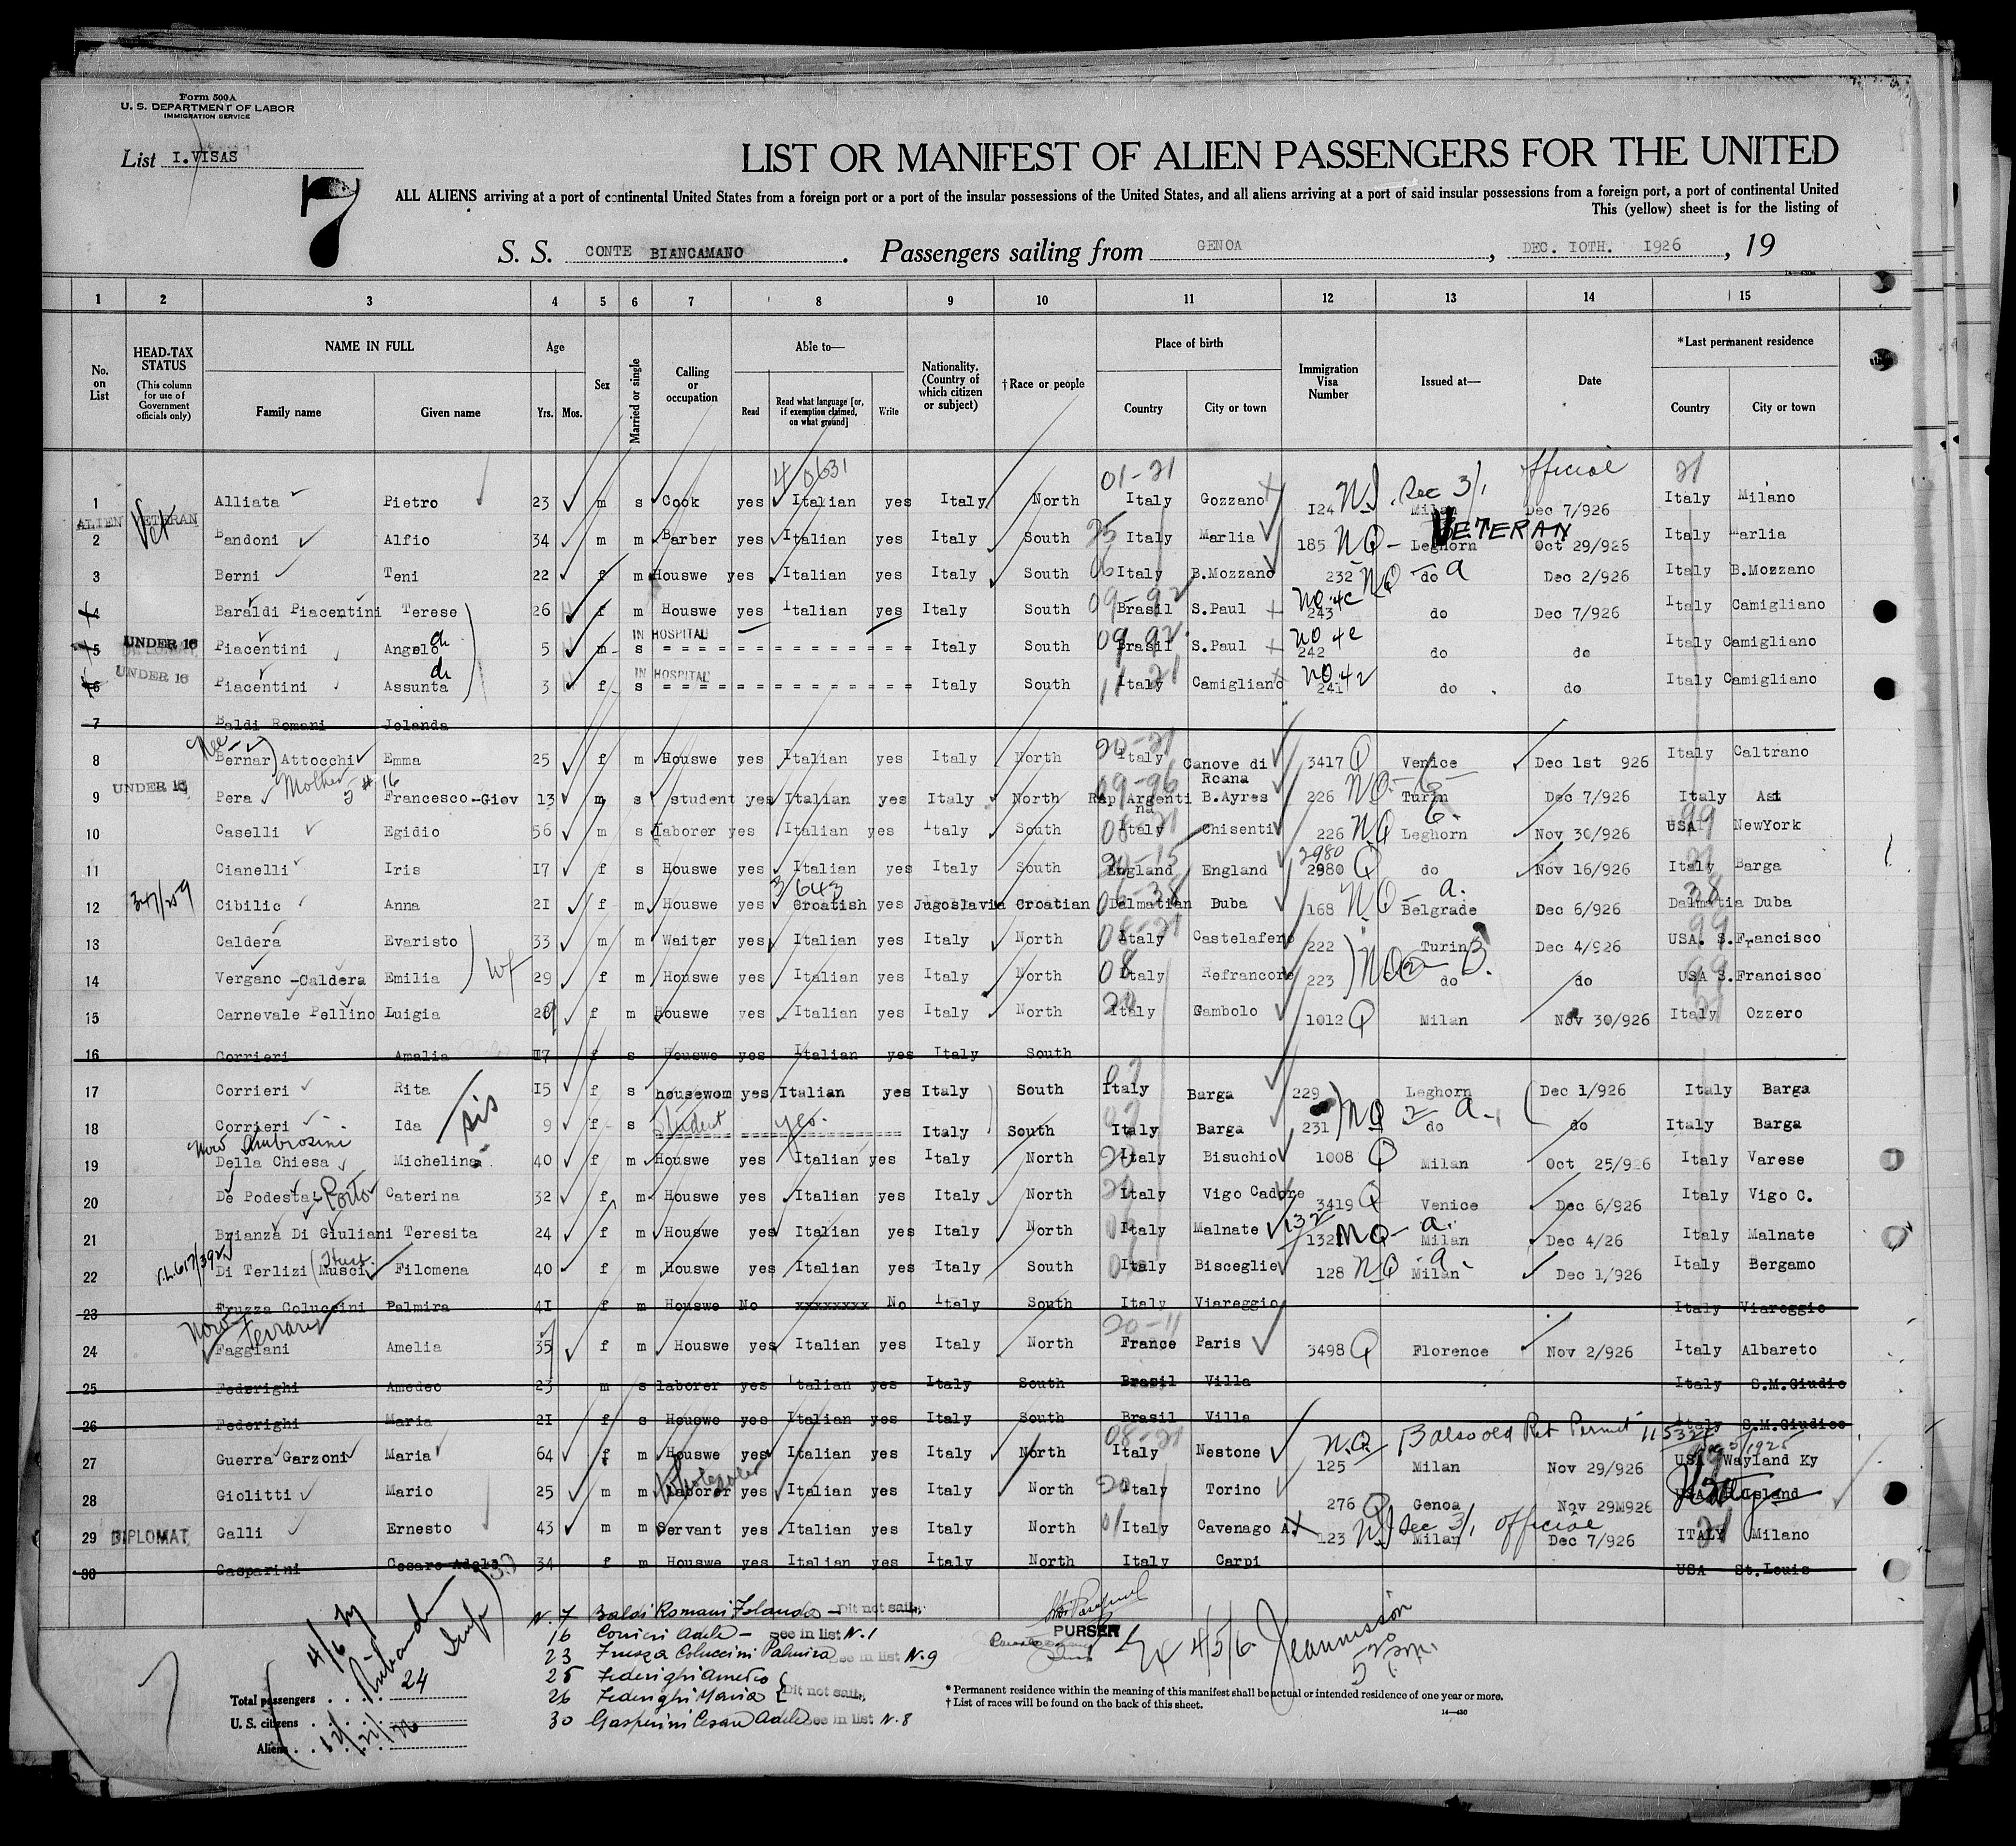 Form 500A
U. S. DEPARTMENT OF LABOR
IMMIGRATION SERVICE
List I. VISAS
7
LIST OR MANIFEST OF ALIEN PASSENGERS FOR THE UNITED
ALL ALIENS arriving at a port of continental United States from a foreign port or a port of the insular possessions of the United States, and all aliens arriving at a port of said insular possessions from a foreign port, a port of continental United
This (yellow) sheet is for the listing of
S. S. CONTE BIANCAMANO . Passengers sailing from GENOA , DEC. IOTH. I926 , 19
1 2 3 4 5 6 7 8 9 10 11 12 13 14 15
No. on List
HEAD-TAX STATUS (This column for use of Government officials only)
NAME IN FULL Family name Given name
Age Yrs. Mos.
Sex
Married or single
Calling or occupation
Able to— Read Read what language [or, if exemption claimed, on what ground] Write
Nationality. (Country of which citizen or subject)
†Race or people
Place of birth Country City or town
Immigration Visa Number
Issued at—
Date
*Last permanent residence Country City or town
4 0631 01-21 official 21
1 Alliata Pietro 23 m s Cook yes Italian yes Italy North Italy Gozzano I24 Sec 3/1 Milan Dec 7/926 Italy Milano
ALIEN VETERAN Vet VETERAN
2 Bandoni Alfio 34 m m Barber yes Italian yes Italy South Italy Marlia 185 NQ- Leghorn Oct 29/926 Italy Marlia
3 Berni Teni 22 f m Houswe yes Italian yes Italy South Italy B.Mozzano 232 NQ do a Dec 2/926 Italy B.Mozzano
4 Baraldi Piacentini Terese 26 f m Houswe yes Italian yes Italy South Brasil S.Paul 243 do Dec 7/926 Italy Camigliano
UNDER 16 IN HOSPITAL
5 Piacentini Angelo 5 m s Italy South Brasil S.Paul 242 do do Italy Camigliano
UNDER 16 IN HOSPITAL
6 Piacentini Assunta 3 f s Italy South Italy Camigliano 241 do do Italy Camigliano
7 Baldi Romani Jolanda
8 Nee Bernar) Attocchi Emma 25 f m Houswe yes Italian yes Italy North Italy Canove di Roana 3417 Q Venice Dec 1st 926 Italy Caltrano
UNDER 16 Mother 5 # 16
9 Pera Francesco-Giov 13 m s student yes Italian yes Italy North Rep Argentina B.Ayres 226 NQ- Turin Dec 7/926 Italy Asti
10 Caselli Egidio 56 m s laborer yes Italian yes Italy South Italy Chisenti 226 NQ Leghorn Nov 30/926 USA NewYork
11 Cianelli Iris I7 f s Houswe yes Italian yes Italy South England England 2980 Q do Nov 16/926 Italy Barga
3/643
12 Cibilic Anna 2I f m Houswe yes Croatish yes Jugoslavia Croatian Dalmatian Duba 168 NQ- a. Belgrade Dec 6/926 Dalmatia Duba
13 Caldera Evaristo 33 m m Waiter yes Italian yes Italy North Italy Castelafero 222 Turin Dec 4/926 USA. S.Francisco
14 Vergano -Caldera Emilia wf 29 f m Houswe yes Italian yes Italy North Italy Refrancore 223 do do USA S.Francisco
15 Carnevale Pellino Luigia f m Houswe yes Italian yes Italy North Italy Gambolo 1012 Q Milan Nov 30/926 Italy Ozzero
16 Corrieri Amalia I7 f s Houswe yes Italian yes Italy South
17 Corrieri Rita I5 f s housewom yes Italian yes Italy South Italy Barga 229 Leghorn Dec 1/926 Italy Barga
18 Corrieri Ida sis 9 f s Student yes. Italy South Italy Barga 231 NQ 2 a. do do Italy Barga
now Ambrosini
19 Della Chiesa Michelina 40 f m Houswe yes Italian yes Italy North Italy Bisuchio 1008 Q Milan Oct 25/926 Italy Varese
20 De Podesta Caterina 32 f m Houswe yes Italian yes Italy North Italy Vigo Cadore 3419 Q Venice Dec 6/926 Italy Vigo C.
21 Brianza Di Giuliani Teresita 24 f m Houswe yes Italian yes Italy North Italy Malnate 132 NQ- a. Milan Dec 4/26 Italy Malnate
22 Di Terlizi (Musci Filomena 40 f m Houswe yes Italian yes Italy South Italy Bisceglie 128 NQ a. Milan Dec 1/926 Italy Bergamo
23 Fruzza Coluccini Palmira 4I f m Houswe No xxxxxxxx No Italy South Italy Viareggio Italy Viareggio
now Ferrary
24 Faggiani Amelia 35 f m Houswe yes Italian yes Italy North France Paris 3498 Q Florence Nov 2/926 Italy Albareto
25 Federighi Amedeo 23 m s laborer yes Italian yes Italy South Brasil Villa Italy S.M.Giudic
26 Federighi Maria 2I f s Houswe yes Italian yes Italy South Brasil Villa Italy S.M.Giudice
27 Guerra Garzoni Maria 64 f m Houswe yes Italian yes Italy North Italy Nestone N.Q. 125 Milan Nov 29/926 USA Wayland Ky
28 Giolitti Mario 25 m m laborer yes Italian yes Italy North Italy Torino 276 Q Genoa Nov 29M926 USA
29 DIPLOMAT Galli Ernesto 43 m m Servant yes Italian yes Italy North Italy Cavenago A. 123 Sec 3/1 official Milan Dec 7/926 ITALY Milano
30 Gasparini Cesare Adele 34 f m Houswe yes Italian yes Italy North Italy Carpi USA St.Louis
N. 7 Baldi Romani Jolanda - Dit not sail.
16 Corrieri Adele - see in list N.1
23 Frusza Coluccini Palmira see in list N.9
25 Federighi Amedeo
26 Federighi Maria { Dit not sail.
30 Gasperini Cesare Adele see in list N.8
PURSER
Jeannisson
Total passengers . . . 24
U. S. citizens . . .
Aliens . . .
12/21/26
* Permanent residence within the meaning of this manifest shall be actual or intended residence of one year or more.
† List of races will be found on the back of this sheet.
14—430